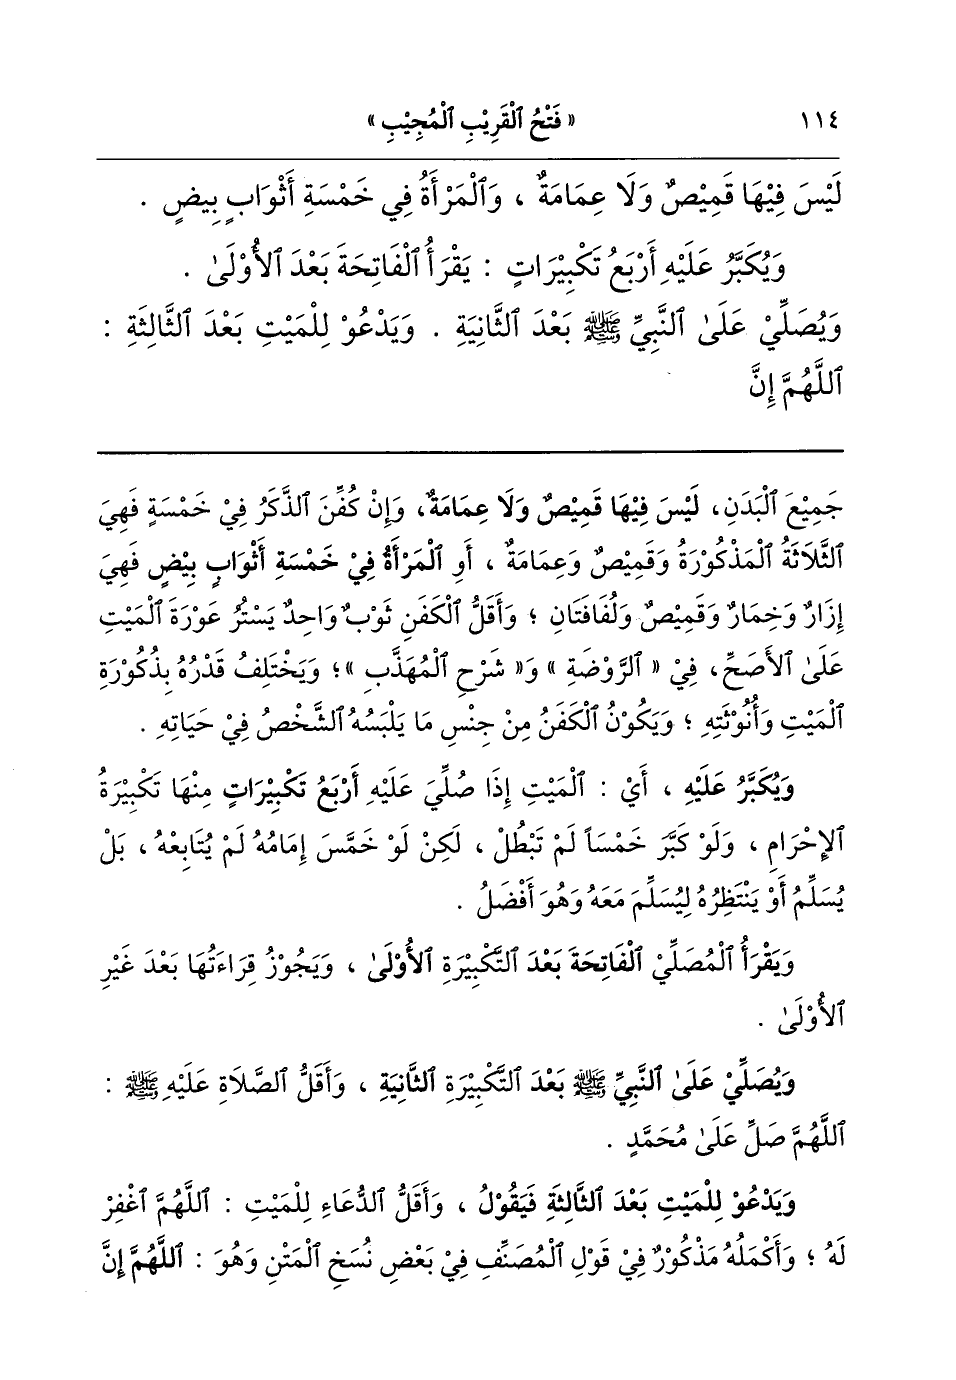 ١١٤ « فَتْحُ ٱلْقَرِيْبِ ٱلْمُجِيْبِ »
لَيْسَ فِيْهَا قَمِيْصٌ وَلَا عِمَامَةٌ ، وَٱلْمَرْأَةُ فِي خَمْسَةِ أَثْوَابٍ بِيضٍ .
وَيُكَبَّرُ عَلَيْهِ أَرْبَعُ تَكْبِيْرَاتٍ : يَقْرَأُ ٱلْفَاتِحَةَ بَعْدَ ٱلأُوْلَىٰ .
وَيُصَلِّيْ عَلَىٰ ٱلنَّبِيِّ ﷺ بَعْدَ ٱلثَّانِيَةِ . وَيَدْعُوْ لِلْمَيْتِ بَعْدَ ٱلثَّالِثَةِ :
ٱللَّهُمَّ إِنَّ
جَمِيْعَ ٱلْبَدَنِ، لَيْسَ فِيْهَا قَمِيْصٌ وَلَا عِمَامَةٌ، وَإِنْ كُفِّنَ ٱلذَّكَرُ فِيْ خَمْسَةٍ فَهِيَ
ٱلثَّلَاثَةُ ٱلْمَذْكُوْرَةُ وَقَمِيْصٌ وَعِمَامَةٌ ، أَوِ ٱلْمَرْأَةُ فِيْ خَمْسَةِ أَثْوَابٍ بِيْضٍ فَهِيَ
إِزَارٌ وَخِمَارٌ وَقَمِيْصٌ وَلُفَافَتَانِ ؛ وَأَقَلُّ ٱلْكَفَنِ ثَوْبٌ وَاحِدٌ يَسْتُرُ عَوْرَةَ ٱلْمَيْتِ
عَلَىٰ ٱلأَصَحِّ، فِيْ « ٱلرَّوْضَةِ » وَ« شَرْحِ ٱلْمُهَذَّبِ »؛ وَيَخْتَلِفُ قَدْرُهُ بِذُكُوْرَةِ
ٱلْمَيْتِ وَأُنُوْثَتِهِ ؛ وَيَكُوْنُ ٱلْكَفَنُ مِنْ جِنْسِ مَا يَلْبَسُهُ ٱلشَّخْصُ فِيْ حَيَاتِهِ .
وَيُكَبَّرُ عَلَيْهِ ، أَيْ : ٱلْمَيْتِ إِذَا صُلِّيَ عَلَيْهِ أَرْبَعُ تَكْبِيْرَاتٍ مِنْهَا تَكْبِيْرَةُ
ٱلإِحْرَامِ ، وَلَوْ كَبَّرَ خَمْسَاً لَمْ تَبْطُلْ ، لَكِنْ لَوْ خَمَّسَ إِمَامُهُ لَمْ يُتَابِعْهُ ، بَلْ
يُسَلِّمُ أَوْ يَنْتَظِرُهُ لِيُسَلِّمَ مَعَهُ وَهُوَ أَفْضَلُ .
وَيَقْرَأُ ٱلْمُصَلِّيْ ٱلْفَاتِحَةَ بَعْدَ ٱلتَّكْبِيْرَةِ ٱلأُوْلَىٰ ، وَيَجُوْزُ قِرَاءَتُهَا بَعْدَ غَيْرِ
ٱلأُوْلَىٰ .
وَيُصَلِّيْ عَلَىٰ ٱلنَّبِيِّ ﷺ بَعْدَ ٱلتَّكْبِيْرَةِ ٱلثَّانِيَةِ ، وَأَقَلُّ ٱلصَّلَاةِ عَلَيْهِ ﷺ :
ٱللَّهُمَّ صَلِّ عَلَىٰ مُحَمَّدٍ .
وَيَدْعُوْ لِلْمَيْتِ بَعْدَ ٱلثَّالِثَةِ فَيَقُوْلُ ، وَأَقَلُّ ٱلدُّعَاءِ لِلْمَيْتِ : ٱللَّهُمَّ ٱغْفِرْ
لَهُ ؛ وَأَكْمَلُهُ مَذْكُوْرٌ فِيْ قَوْلِ ٱلْمُصَنِّفِ فِيْ بَعْضِ نُسَخِ ٱلْمَتْنِ وَهُوَ : ٱللَّهُمَّ إِنَّ